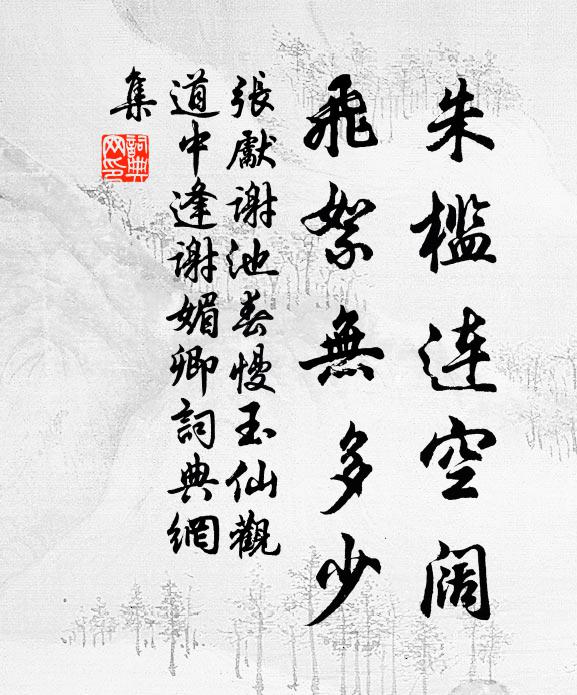 朱檻連空阔
飛絮無多少
張獻謝池春慢玉仙觀
道中逢謝媚卿詞典網
集
詞典
网印